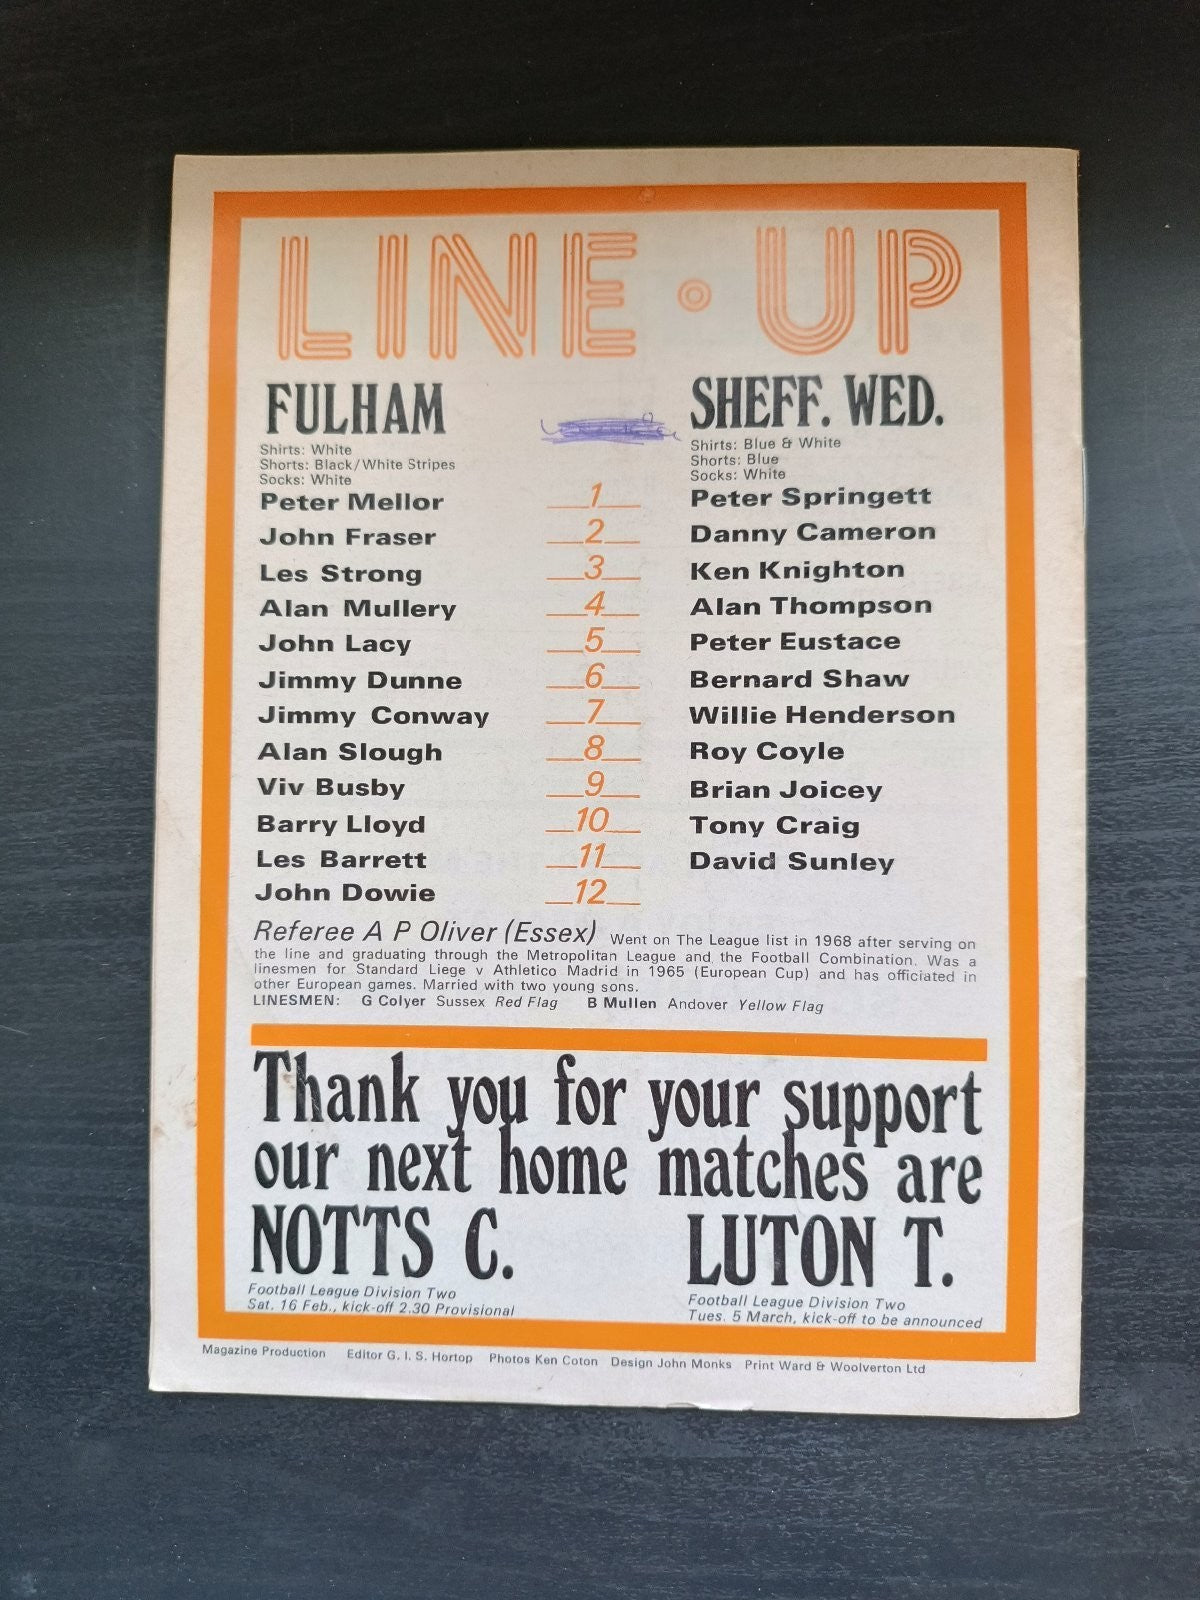 LINE·UP
FULHAM
Shirts: White
Shorts: Black/White Stripes
Socks: White
SHEFF. WED.
Shirts: Blue & White
Shorts: Blue
Socks: White
Peter Mellor 1 Peter Springett
John Fraser 2 Danny Cameron
Les Strong 3 Ken Knighton
Alan Mullery 4 Alan Thompson
John Lacy 5 Peter Eustace
Jimmy Dunne 6 Bernard Shaw
Jimmy Conway 7 Willie Henderson
Alan Slough 8 Roy Coyle
Viv Busby 9 Brian Joicey
Barry Lloyd 10 Tony Craig
Les Barrett 11 David Sunley
John Dowie 12
Referee A P Oliver (Essex) Went on The League list in 1968 after serving on
the line and graduating through the Metropolitan League and the Football Combination. Was a
linesmen for Standard Liege v Athletico Madrid in 1965 (European Cup) and has officiated in
other European games. Married with two young sons.
LINESMEN: G Colyer Sussex Red Flag B Mullen Andover Yellow Flag
Thank you for your support
our next home matches are
NOTTS C.
Football League Division Two
Sat. 16 Feb., kick-off 2.30 Provisional
LUTON T.
Football League Division Two
Tues. 5 March, kick-off to be announced
Magazine Production Editor G. I. S. Hortop Photos Ken Coton Design John Monks Print Ward & Woolverton Ltd